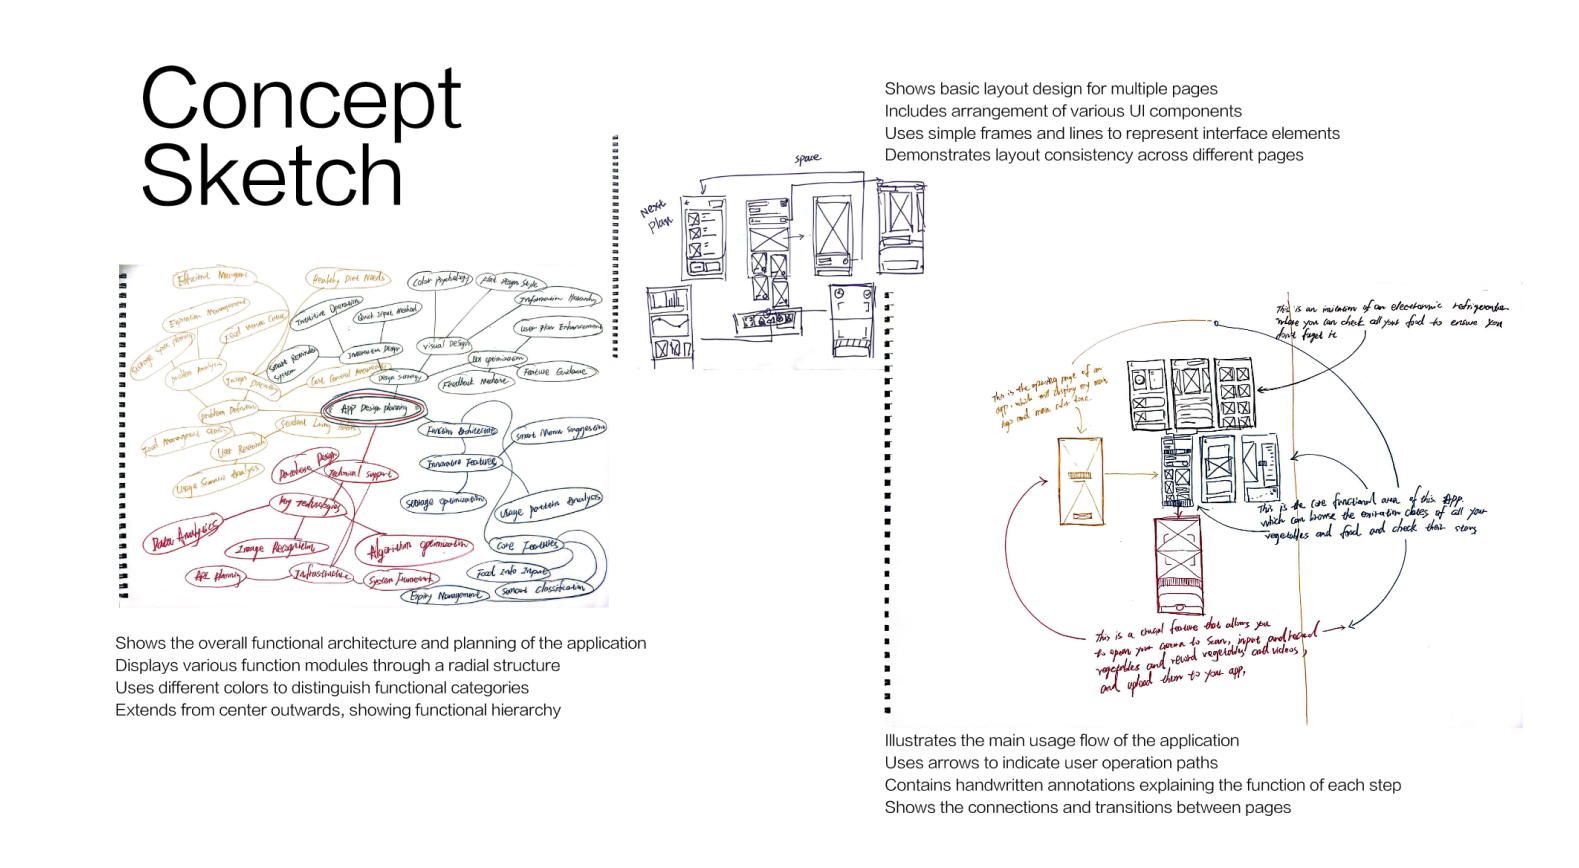 Concept
Sketch
Shows basic layout design for multiple pages
Includes arrangement of various UI components
Uses simple frames and lines to represent interface elements
Demonstrates layout consistency across different pages
space
Next
Plan
Efficient
Healthy Diet Needs
Color Psychology
Flat Design Style
Information Hierarchy
Expiration Management
Intuitive Operation
Quick Input Method
User Flow Enhancement
Food Waste
Visual Design
Smart Reminder
System
Interaction Design
UX Optimization
Problem Analysis
Design Strategy
Feedback
Feature Guidance
APP Design planning
Problem Definition
Student Living
Function Architecture
Smart Menu Suggestion
Food Management
User Research
Database Design
Technical Support
Innovative Features
Usage Scenario Analysis
Key Technologies
Storage Optimization
Usage pattern Analysis
Data Analytics
Image Recognition
Algorithm Optimization
Core Features
API Planning
Infrastructure
System Framework
Food Info Input
Expiry Management
Smart Classification
Shows the overall functional architecture and planning of the application
Displays various function modules through a radial structure
Uses different colors to distinguish functional categories
Extends from center outwards, showing functional hierarchy
This is an imitation of an electronic refrigerator
where you can check all your food to ensure you
don't forget it
This is the opening page of an
app, which will display my main
logo and main color tone.
This is the core functional area of this App.
which can browse the expiration dates of all your
vegetables and food and check their
This is a crucial feature that allows you
to open your camera to scan, input and record
vegetables and record vegetables and videos,
and upload them to your app,
Illustrates the main usage flow of the application
Uses arrows to indicate user operation paths
Contains handwritten annotations explaining the function of each step
Shows the connections and transitions between pages